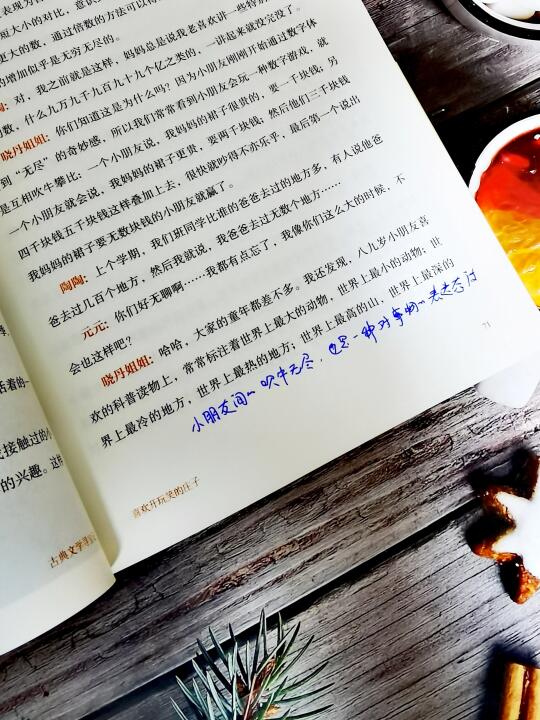 短大小的对比，意识
更大的数，通过倍数的方法可以得
的增加似乎是无穷无尽的。
陶：对，我之前就是这样，妈妈总是说我老喜欢讲一些特别
的数，什么九万九千九百九十九个亿之类的，一讲起来就没完没了。
晓丹姐姐：你们知道这是为什么吗？因为小朋友刚刚开始通过数字体
到“无尽”的奇妙感，所以我们常常看到小朋友会玩一种数字游戏，就
是互相吹牛攀比：一个小朋友说，我妈妈的裙子很贵的，要一千块钱，另
一个小朋友就会说，我妈妈的裙子更贵，要两千块钱；然后他们三千块钱
四千块钱五千块钱这样叠加上去，很快就吵得不亦乐乎，最后第一个说出
我妈妈的裙子要无数块钱的小朋友就赢了。
陶陶：上个学期，我们班同学比谁的爸爸去过的地方多，有人说他爸
爸去过几百个地方，然后我就说，我爸爸去过无数个地方……
元元：你们好无聊啊……我都有点忘了，我像你们这么大的时候，不
会也这样吧？
晓丹姐姐：哈哈，大家的童年都差不多。我还发现，八九岁小朋友喜
欢的科普读物上，常常标注着世界上最大的动物，世界上最小的动物；世
界上最冷的地方，世界上最热的地方；世界上最高的山，世界上最深的
小朋友间的吹牛无尽，也是一种对事物的表达方法
71
喜欢开玩笑的庄子
活着的一
度接触过的小
的兴趣。这
古典文学